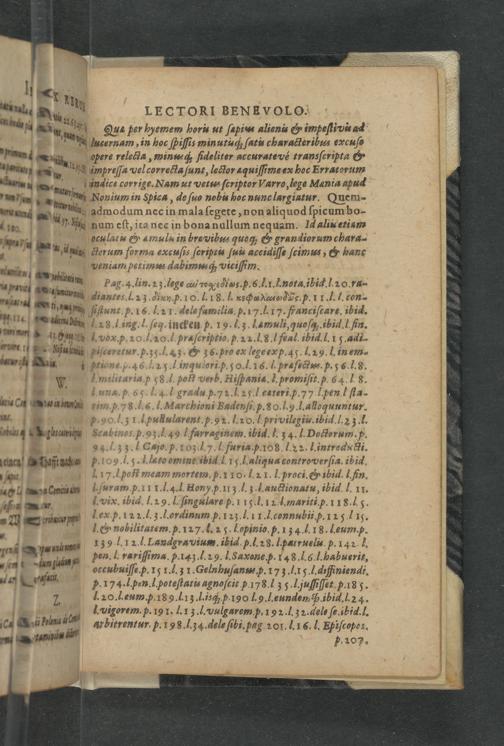 LECTORI BENEVOLO.
Quæ per hyemem horis ut sæpius alienis & impestivis ad
lucernam, in hoc spissis minutisq; satis characteribus excuso
opere relecta, minusq; fideliter accuratevè transscripta &
impressa vel correcta sunt, lector æquissime ex hoc Erratorum
indice corrige. Nam ut vetus scriptor Varro, lege Mænia apud
Nonium in Spica, de suo nobis hoc nunc largiatur. Quem-
admodum nec in mala segete, non aliquod spicum bo-
num est, ita nec in bona nullum nequam. Id aliis etiam
oculatis & æmulis in brevibus quoq; & grandiorum chara-
cterum forma excusis scriptis suis accidisse scimus, & hanc
veniam petimus dabimusq; vicissim.
Pag. 4. lin. 23. lege p. 6. l. 1. l. nota. ibid. l. 20. ra-
diantes. l. 23. δίκη. p. 10. l. 18. l. p. 11. l. l. con-
sistunt. p. 16. l. 21. dele familia. p. 17. l. 17. franciscare. ibid.
l. 28. ing. l. seq. incken p. 19. l. 3. l. æmuli, quosq;. ibid. l. fin.
l. vox. p. 20. l. 20. l. præscriptio. p. 22. l. 8. l feal. ibid. l. 15. adi-
pisceretur. p. 35. l. 43. & 36. pro ex lege exp. 45. l. 29. l. in em-
ptione. p. 46. l. 25. l. inquiori. p. 50. l. 16. l. præfectus. p. 56. l. 8.
l. militaria. p 58. l. post verb. Hispania. l. promisit. p. 64. l. 8.
l. una. p. 65. l. 4. l. gradu p. 72. l. 25. l cæteri. p. 77. l pen. l sta-
tim. p. 78. l. 6. l. Marchioni Badensi. p. 80. l. 9. l. alloquuntur.
p. 90. l. 31. l. pullularent. p. 92. l. 20. l privilegiis. ibid. l. 23. l.
Scabinos. p. 93. l. 49 l. farraginem. ibid. l. 34. l. Doctorum. p.
94. l. 33. l Cajo. p. 103. l. 7. l. furia. p. 108. l. 22. l. introducti.
p. 109. l. 5. l. læto omine. ibid. l. 15. l. aliqua controversia. ibid.
l. 17. l. post meam mortem. p. 110. l. 21. l. proci, & ibid. l. fin.
l. juram. p. 111. l. 4. l. Hony. p. 113. l. 3. l. auctionatu, ibid. l. 11.
l. vix. ibid. l. 29. l. singulare p. 115. l. 12. l. mariti. p. 118. l. 5.
l. ex. p. 122. l. 3. l. ordinum p. 123. l. 11. l. connubii. p. 125. l. 15.
l. & nobilitatem p. 127. l. 25. l. opinio. p. 134. l. 18. l. eum. p.
139. l. 12. l. Landgravium. ibid. p. l. 28. l. patruelis. p. 142. l.
pen. l. rarissima. p. 143. l. 29. l. Saxone. p. 148. l. 6. l. habuerit,
occubuisse. p. 151. l. 31. Gelnhusanus. p. 173. l. 15. l. diffiniendi.
p. 174. l. pen. l. potestatis agnoscit p. 178. l 35. l. jussisset. p. 185.
l. 20. l. eum. p. 189. l. 13. l. isq; p 190 l. 9. l. eundemq;. ibid. l. 24.
l. vigorem. p. 191. l. 13. l. vulgarem. p. 192. l. 32. dele se. ibid. l.
arbitrentur. p. 198. l. 34. dele sibi. pag 201. l. 16. l. Episcopos.
p. 207.
W.
Z.